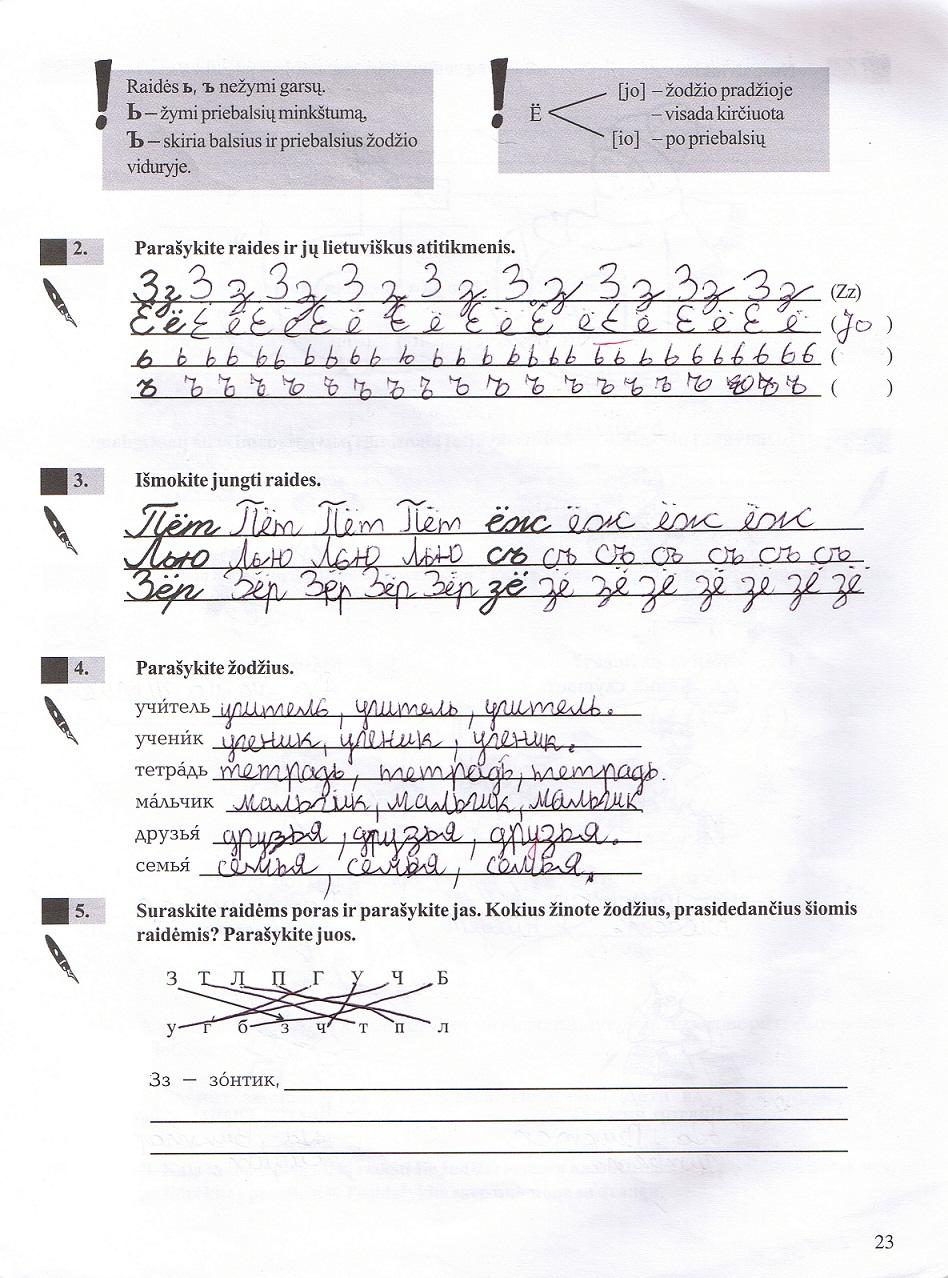 Raidės ь, ъ nežymi garsų.
Ь – žymi priebalsių minkštumą,
Ъ – skiria balsius ir priebalsius žodžio
viduryje.
Ё
[jo] – žodžio pradžioje
– visada kirčiuota
[io] – po priebalsių
2. Parašykite raides ir jų lietuviškus atitikmenis.
Зз З з З з З з З з З з З з З з З з (Zz)
Ёё Ё ё Ё ё Ё ё Ё ё Ё ё Ё ё Ё ё Ё ё Ё ё (Jo )
ь ь ь ь ь ь ь ь ь ь ь ь ь ь ь ь ь ь ь ь ь ь ь ь ь ь ( )
ъ ъ ъ ъ ъ ъ ъ ъ ъ ъ ъ ъ ъ ъ ъ ъ ъ ъ ъ ъ ( )
3. Išmokite jungti raides.
Пёт Пёт Пёт Пёт ёж ёж ёж ёж
Лью Лью Лью Лью съ съ съ съ съ съ съ
Зёр Зёр Зёр Зёр Зёр зё зё зё зё зё зё зё зё
4. Parašykite žodžius.
учи́тель учитель, учитель, учитель.
учени́к ученик, ученик, ученик.
тетра́дь тетрадь, тетрадь, тетрадь.
ма́льчик мальчик, мальчик, мальчик
друзья́ друзья, друзья, друзья.
семья́ семья, семья, семья.
5. Suraskite raidėms poras ir parašykite jas. Kokius žinote žodžius, prasidedančius šiomis
raidėmis? Parašykite juos.
З Т Л П Г У Ч Б
у г б з ч т п л
Зз – зо́нтик,
23